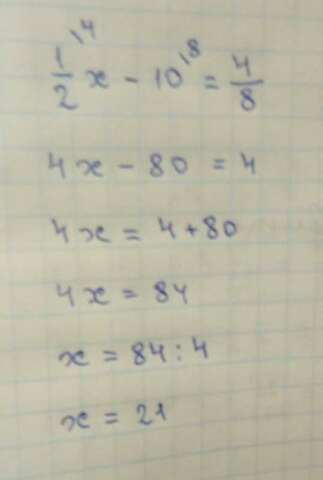 1/2 \4 x - 10 \8 = 4/8
4x - 80 = 4
4x = 4 + 80
4x = 84
x = 84 : 4
x = 21